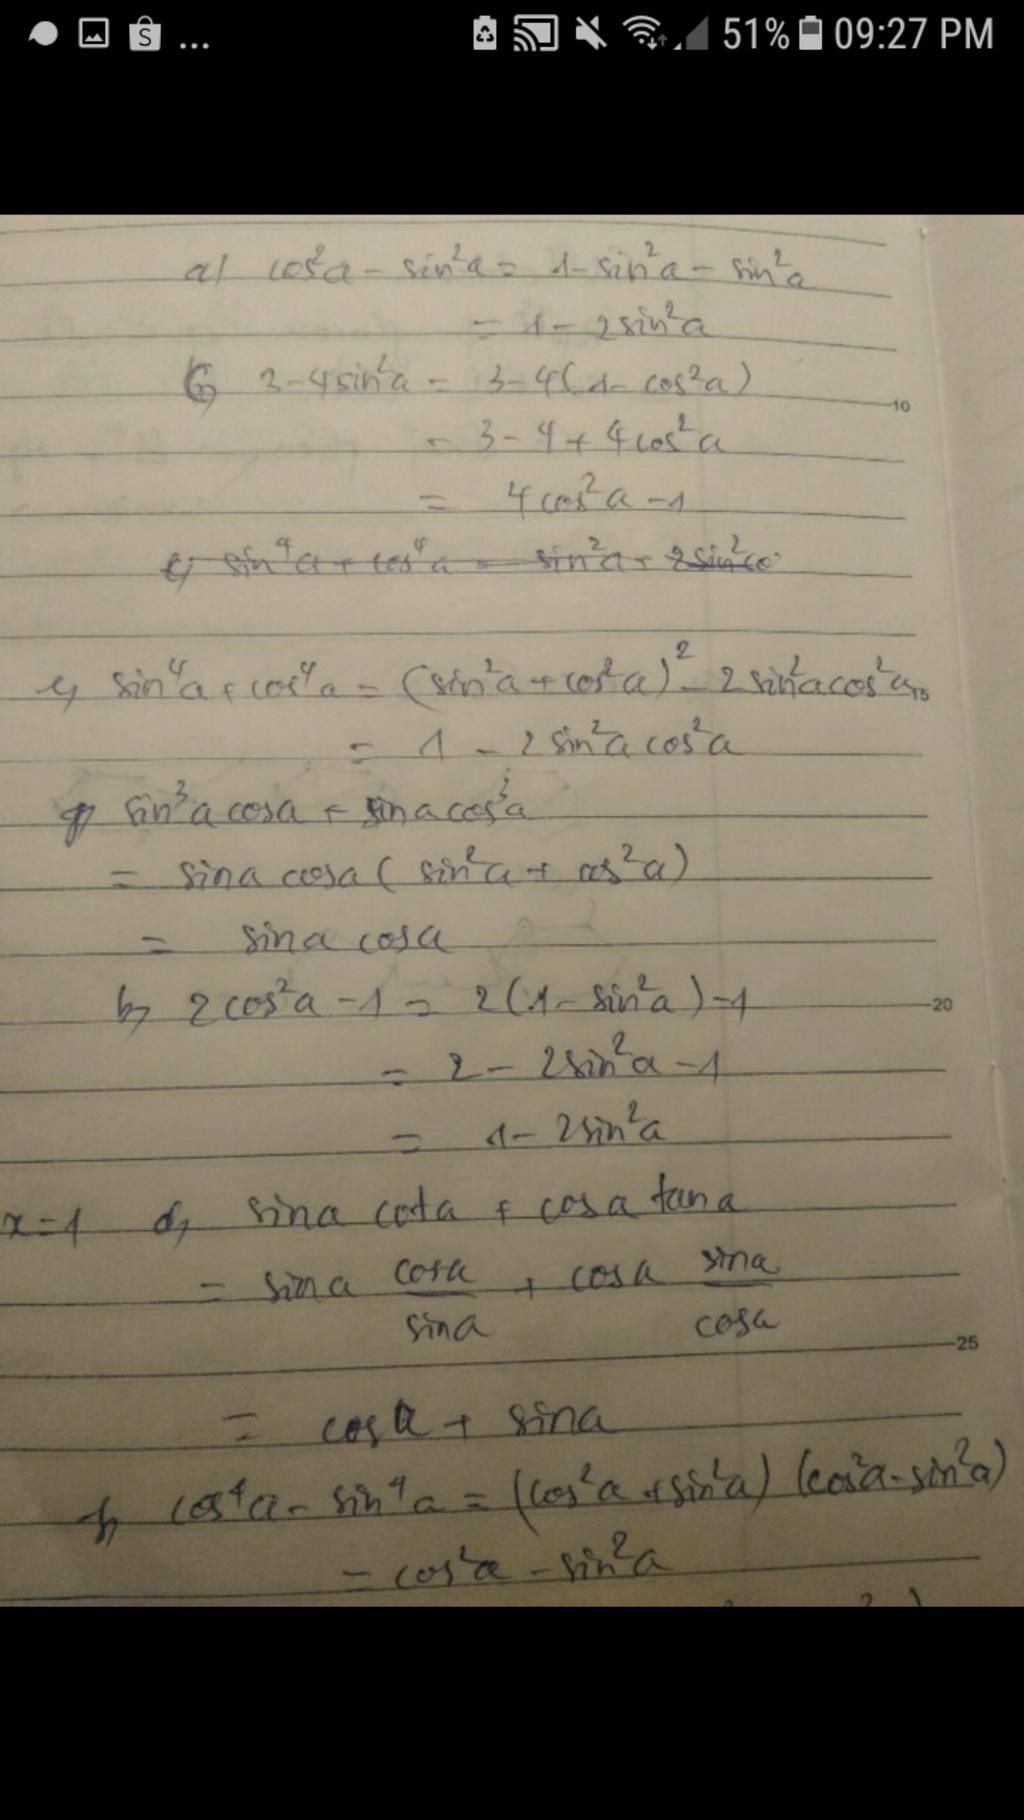 51% 09:27 PM
a) cos²a - sin²a = 1 - sin²a - sin²a
= 1 - 2sin²a
3 - 4sin²a = 3 - 4(1 - cos²a)
10
= 3 - 4 + 4cos²a
= 4cos²a - 1
sin⁴a + cos⁴a = sin²a + 2sin²co
e, sin⁴a + cos⁴a = (sin²a + cos²a)² - 2sin²a cos²a
15
= 1 - 2sin²a cos²a
sin³a cosa + sina cos³a
= sina cosa ( sin²a + cos²a)
= sina cosa
b, 2cos²a - 1 = 2(1 - sin²a) - 1
20
= 2 - 2sin²a - 1
= 1 - 2sin²a
x = 1 d, sina cota + cosa tana
= sina cosa/sina + cosa sina/cosa
25
= cosa + sina
f, cos⁴a - sin⁴a = (cos²a + sin²a) (cos²a - sin²a)
= cos²a - sin²a